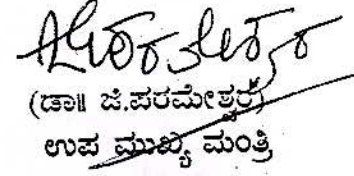 (ಡಾ॥ ಜಿ.ಪರಮೇಶ್ವರ)
ಉಪ ಮುಖ್ಯ ಮಂತ್ರಿ